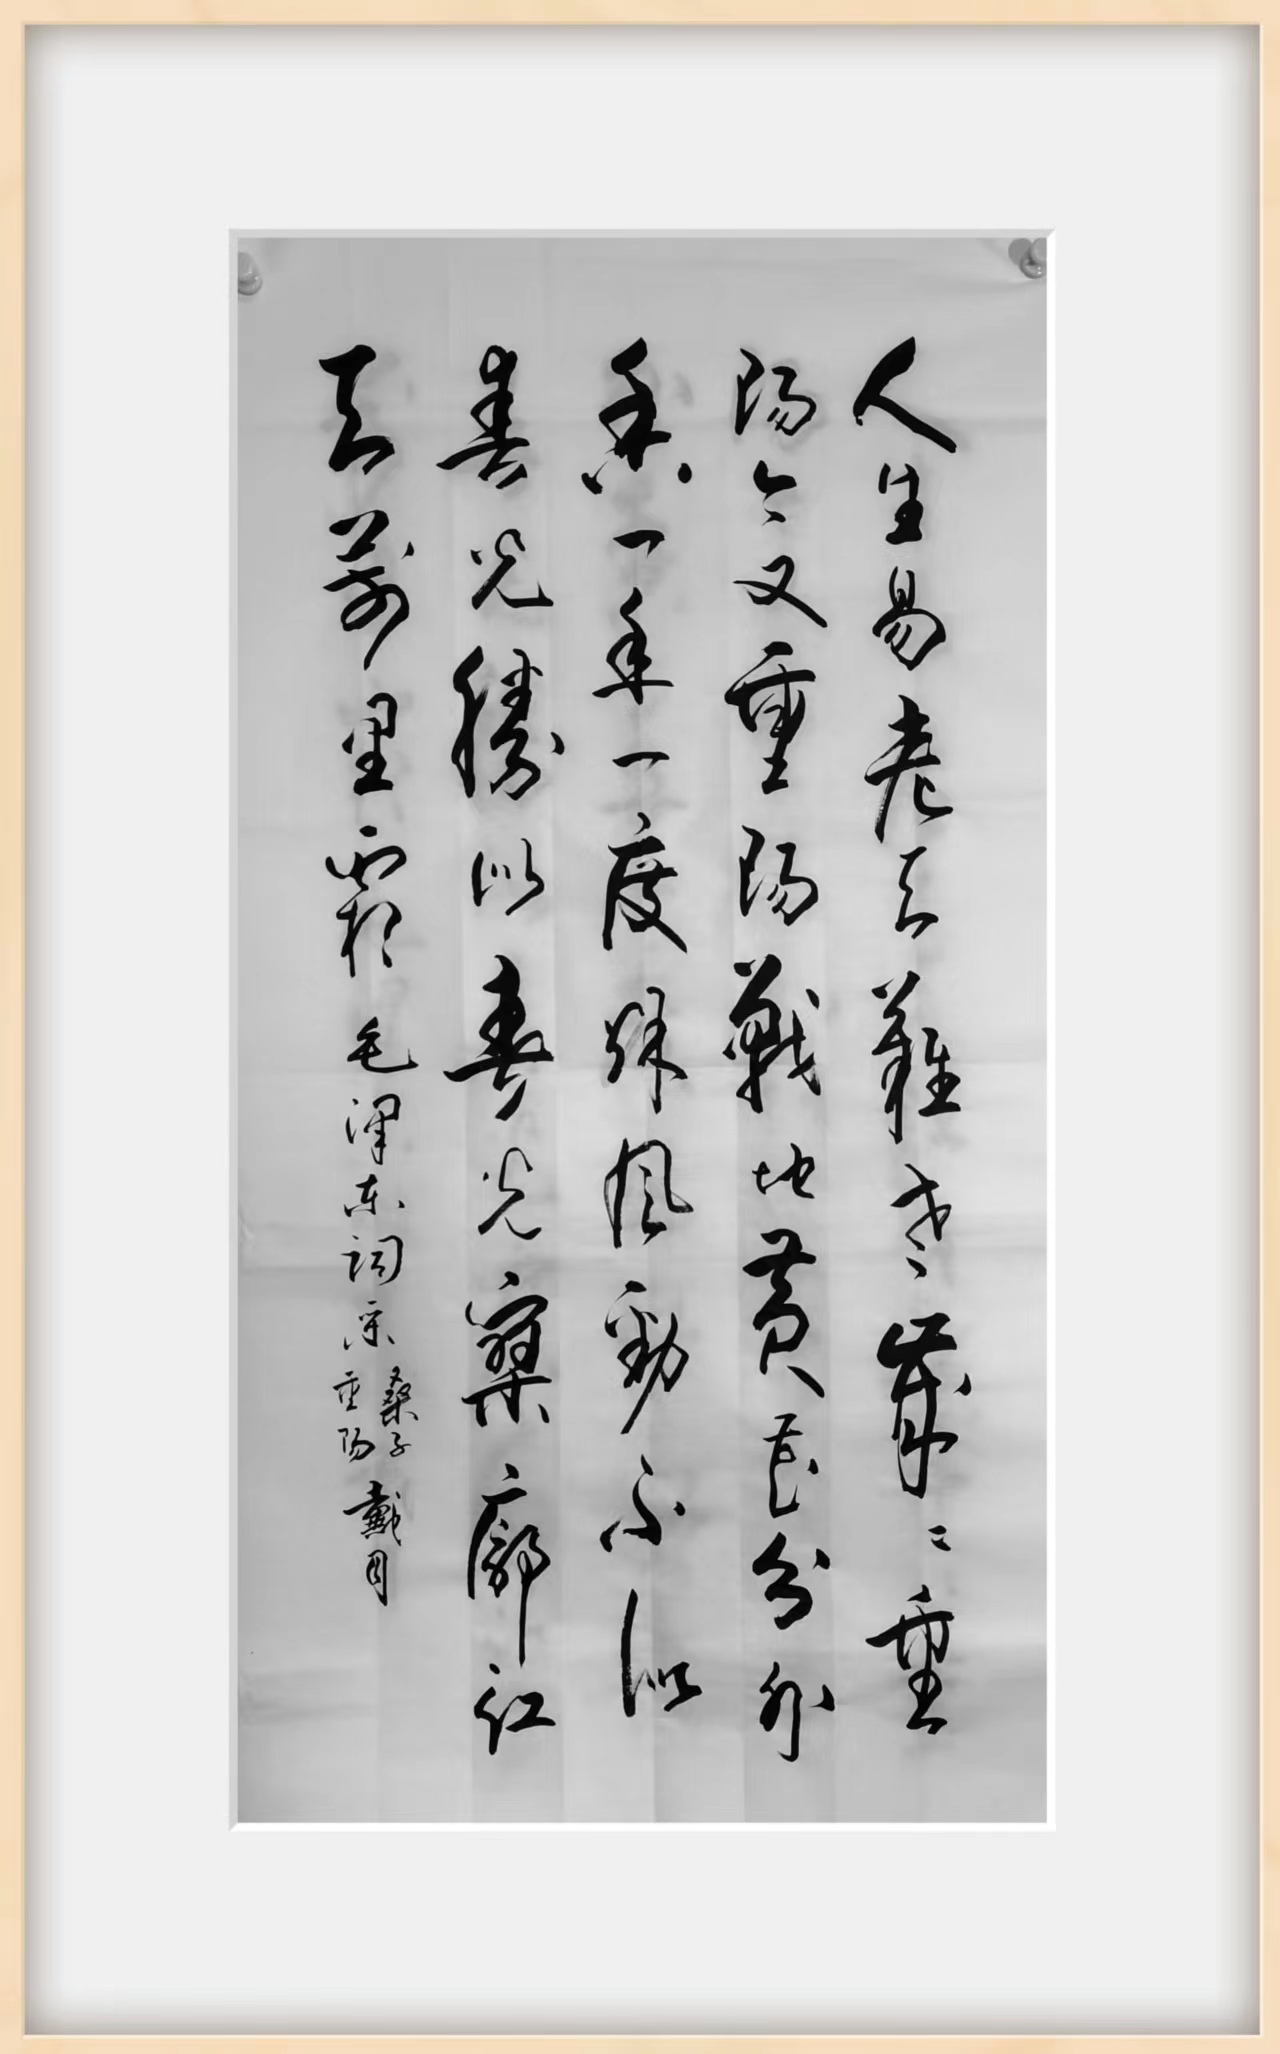 人生易老天難老歲〻重
陽今又重陽戰地黃花分外
香一年一度秋風勁不似
春光勝似春光寥廓江
天萬里霜 毛澤東詞采
桑子
重陽
戴